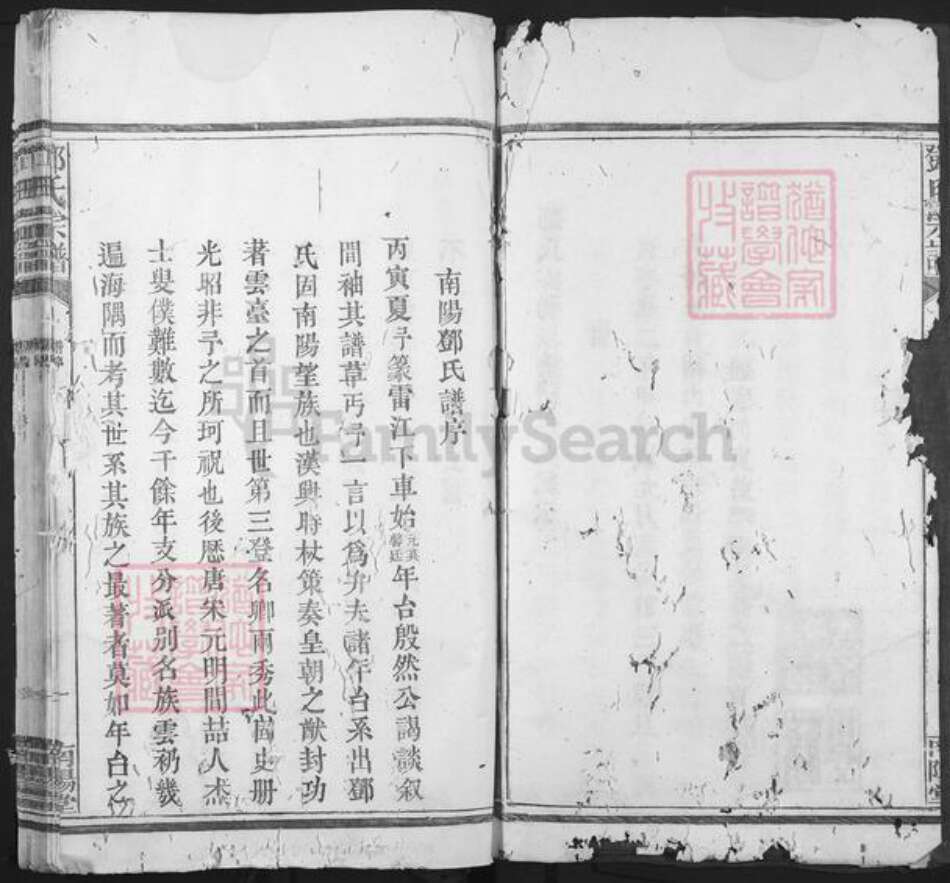 鄧氏宗譜
南陽堂
猶他家
譜學會
收藏
南陽鄧氏譜序
丙寅夏予篆雷江下車始元英馨廷年台殷然公謁談叙
間袖其譜草丐予一言以爲弁夫諸年台系出鄧
氏固南陽望族也漢興時杖策奏皇朝之猷封功
著雲臺之首而且世第三登名卿兩秀此崗史册
光昭非予之所珂祝也後歷唐宋元明間喆人杰
士叟僕難數迄今千餘年支分派別名族雲礽幾
遍海隅而考其世系其族之最著者莫如年台之
鄧氏宗譜
南陽堂
猶他家
譜學會
收藏
FamilySearch